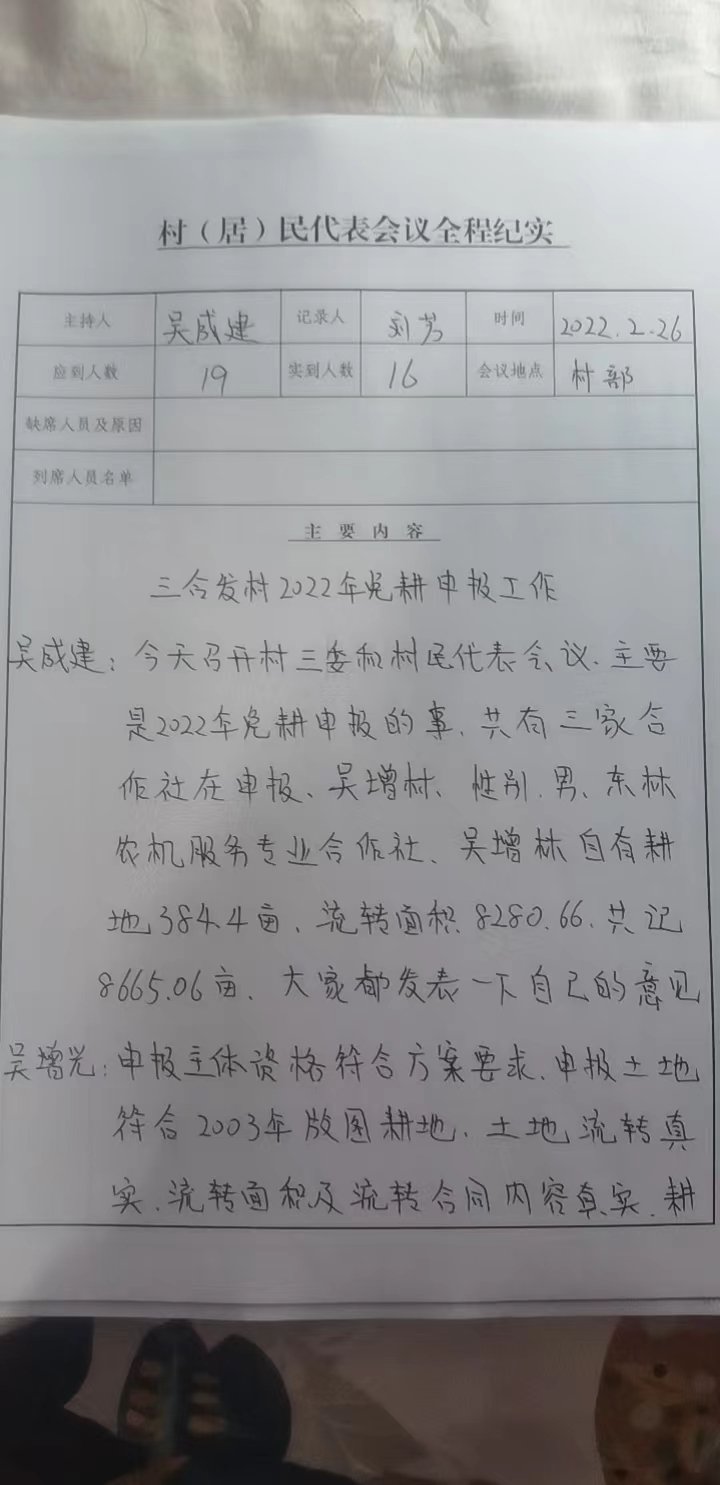 村（居）民代表会议全程纪实
主持人 吴成建 记录人 刘芳 时间 2022.2.26
应到人数 19 实到人数 16 会议地点 村部
缺席人员及原因
列席人员名单
主要内容
三合发村2022年免耕申报工作
吴成建：今天召开村三委和村民代表会议、主要
是2022年免耕申报的事、共有三家合
作社在申报、吴增林、性别、男、东林
农机服务专业合作社、吴增林自有耕
地384.4亩、流转面积8280.66、共记
8665.06亩、大家都发表一下自己的意见
吴增光：申报主体资格符合方案要求、申报土地
符合2003年版图耕地、土地流转真
实、流转面积及流转合同内容真实、耕